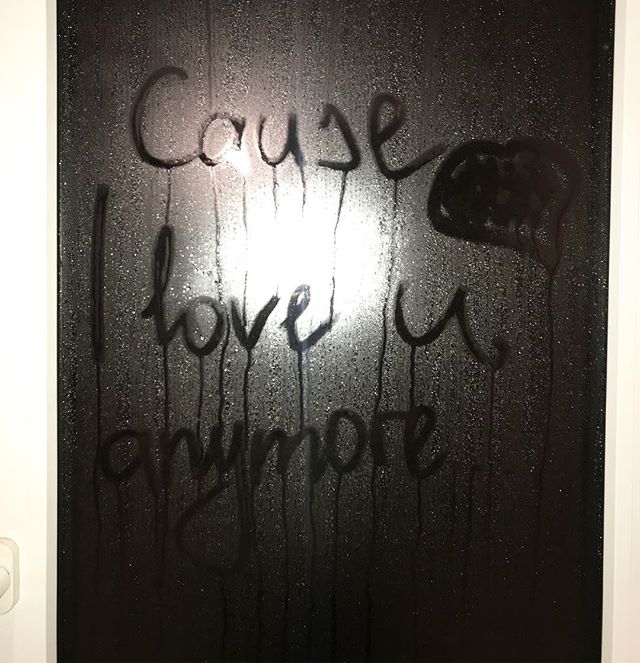 Cause
I love u,
anymore